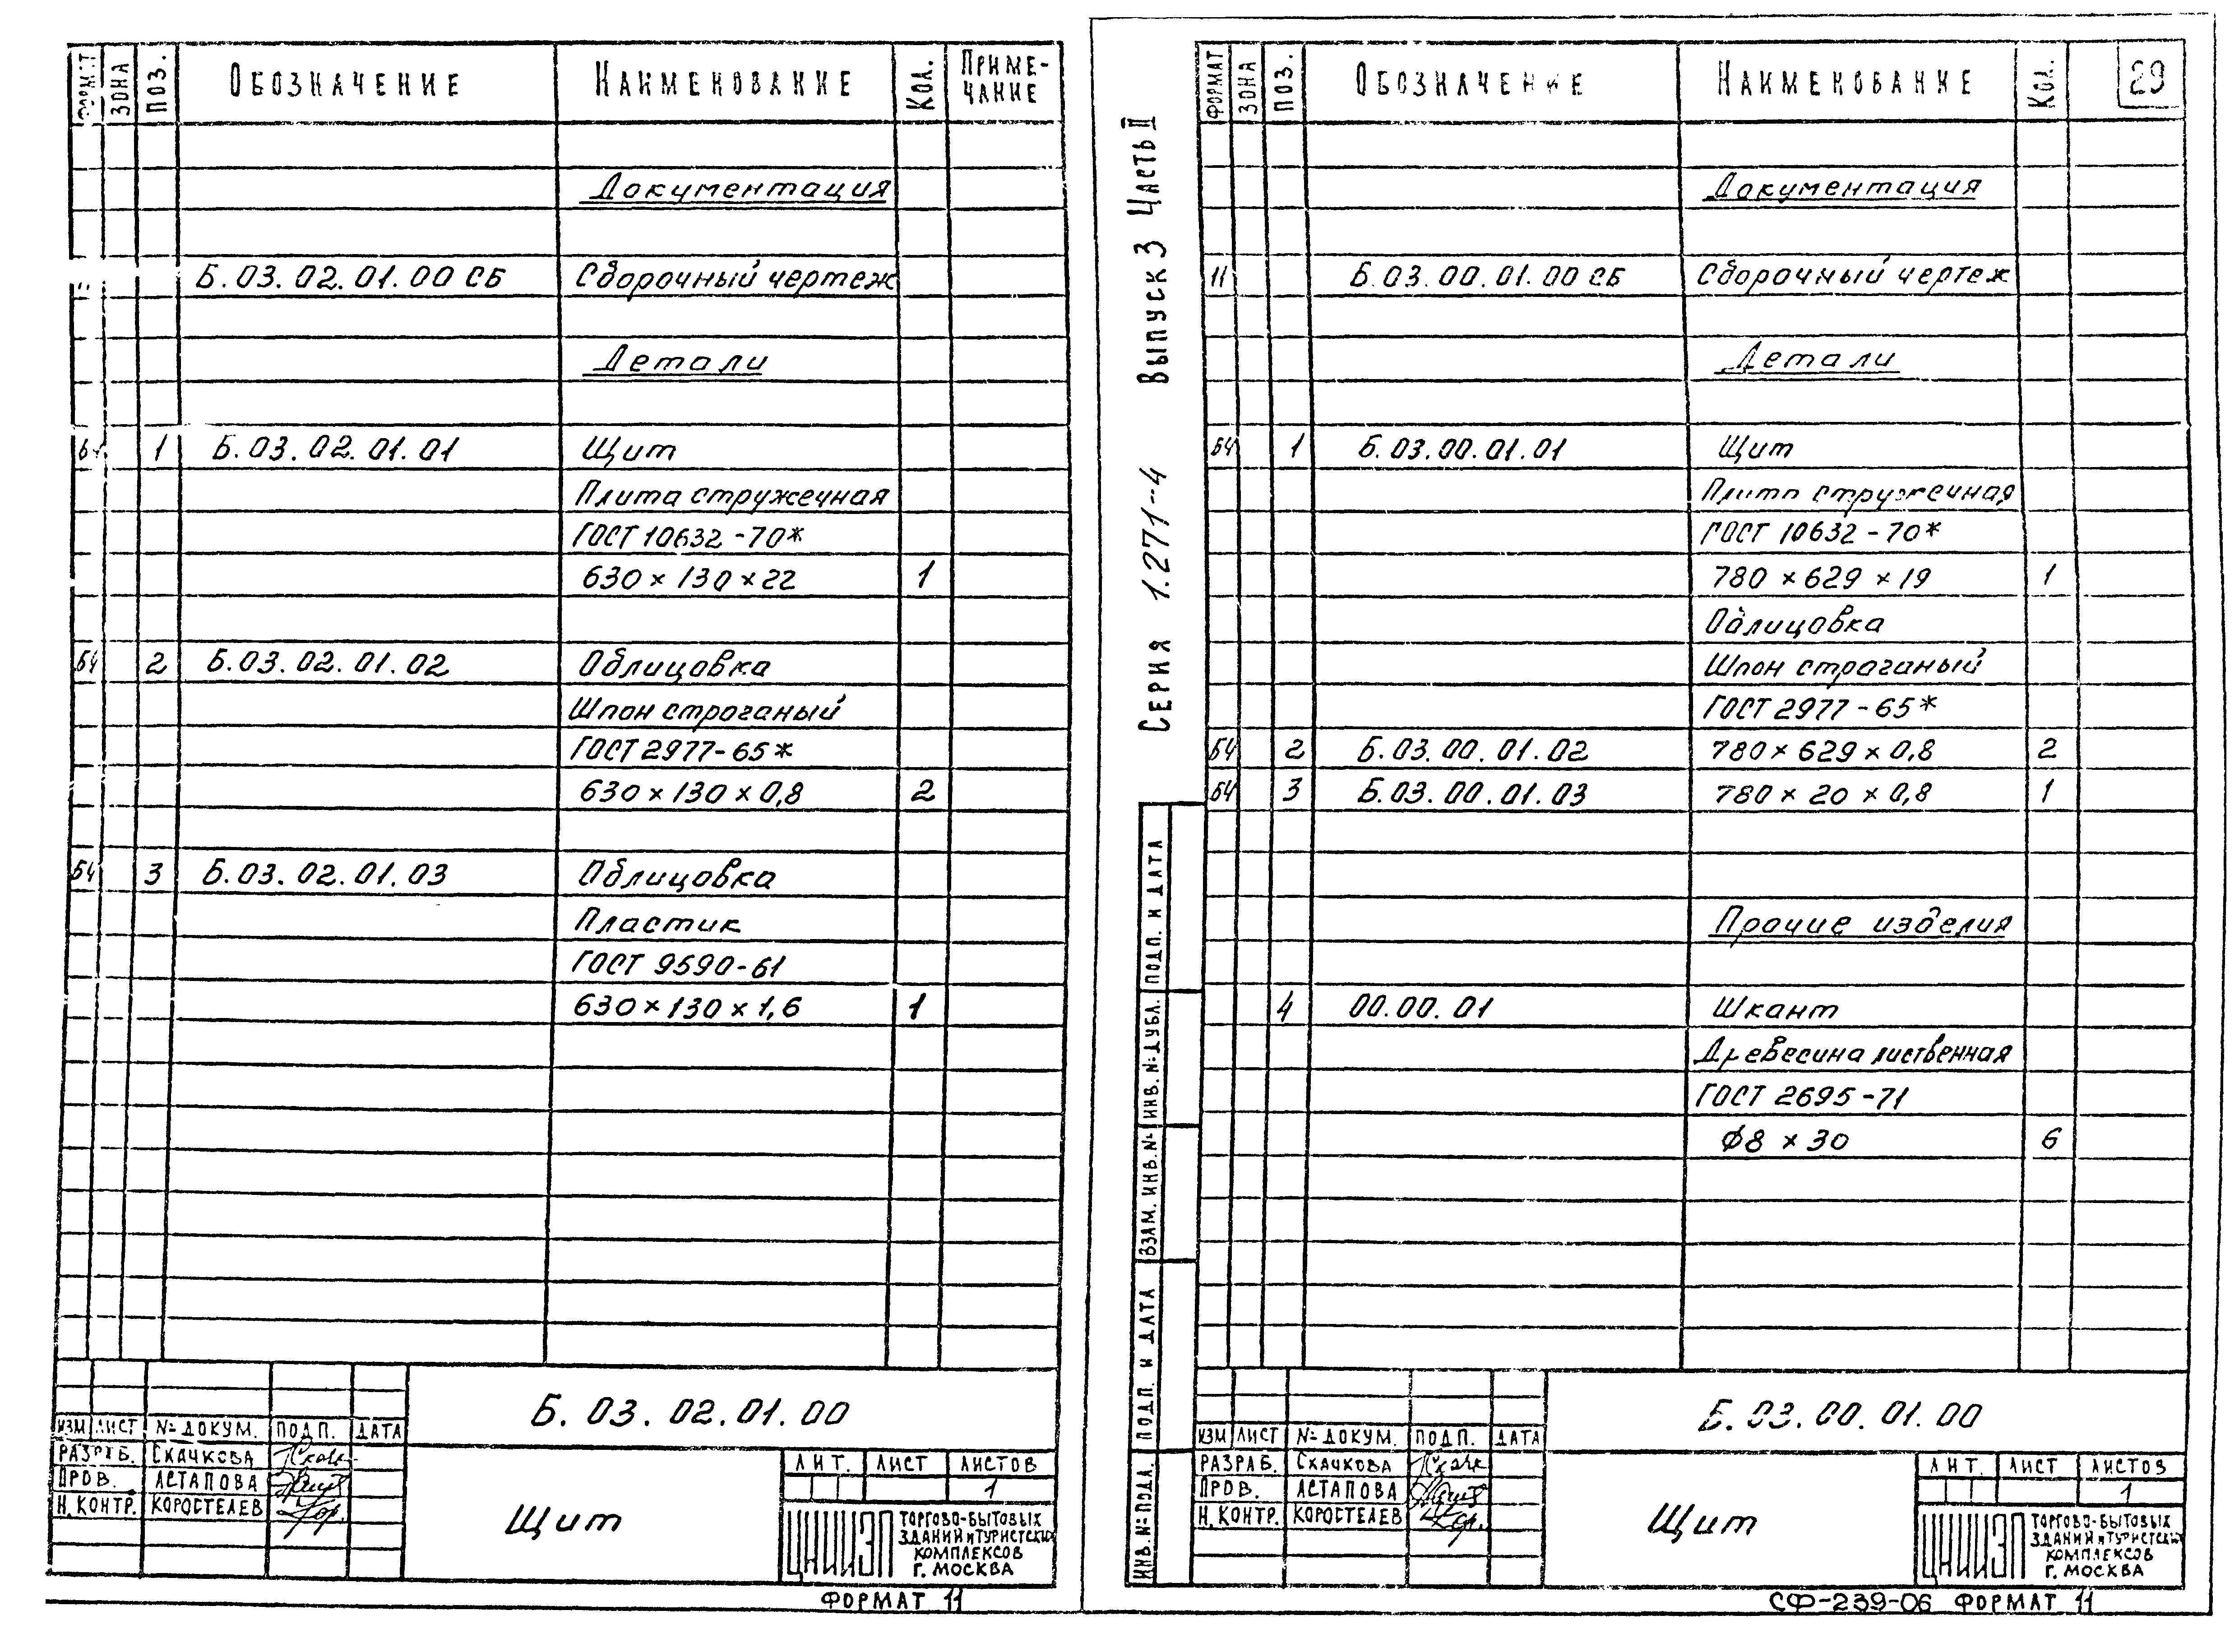 ФОРМАТ ЗОНА ПОЗ. ОБОЗНАЧЕНИЕ НАИМЕНОВАНИЕ КОЛ. ПРИМЕ-
ЧАНИЕ
Документация
Б.03.02.01.00 СБ Сборочный чертеж
Детали
Б4 1 Б.03.02.01.01 Щит
Плита стружечная
ГОСТ 10632-70*
630×130×22 1
Б4 2 Б.03.02.01.02 Облицовка
Шпон строганый
ГОСТ 2977-65*
630×130×0,8 2
Б4 3 Б.03.02.01.03 Облицовка
Пластик
ГОСТ 9590-61
630×130×1,6 1
Б.03.02.01.00
ИЗМ ЛИСТ № ДОКУМ. ПОДП. ДАТА
РАЗРАБ. СКАЧКОВА
ПРОВ. АСТАПОВА
Н.КОНТР. КОРОСТЕЛЕВ
Щит
ЛИТ. ЛИСТ ЛИСТОВ
1
ЦНИИЭП
ТОРГОВО-БЫТОВЫХ
ЗДАНИЙ И ТУРИСТСКИХ
КОМПЛЕКСОВ
Г. МОСКВА
ФОРМАТ 11
СЕРИЯ 1.271-4 ВЫПУСК 3 ЧАСТЬ II
ФОРМАТ ЗОНА ПОЗ. ОБОЗНАЧЕНИЕ НАИМЕНОВАНИЕ КОЛ. 29
Документация
11 Б.03.00.01.00 СБ Сборочный чертеж
Детали
Б4 1 Б.03.00.01.01 Щит
Плита стружечная
ГОСТ 10632-70*
780×629×19 1
Облицовка
Шпон строганый
ГОСТ 2977-65*
Б4 2 Б.03.00.01.02 780×629×0,8 2
Б4 3 Б.03.00.01.03 780×20×0,8 1
Прочие изделия
4 00.00.01 Шкант
Древесина лиственная
ГОСТ 2695-71
φ8×30 6
ИНВ. № ПОДЛ. ПОДП. И ДАТА ВЗАМ. ИНВ. № ИНВ. № ДУБЛ. ПОДП. И ДАТА
Б.03.00.01.00
ИЗМ ЛИСТ № ДОКУМ. ПОДП. ДАТА
РАЗРАБ. СКАЧКОВА
ПРОВ. АСТАПОВА
Н.КОНТР. КОРОСТЕЛЕВ
Щит
ЛИТ. ЛИСТ ЛИСТОВ
1
ЦНИИЭП
ТОРГОВО-БЫТОВЫХ
ЗДАНИЙ И ТУРИСТСКИХ
КОМПЛЕКСОВ
Г. МОСКВА
СФ-239-06 ФОРМАТ 11